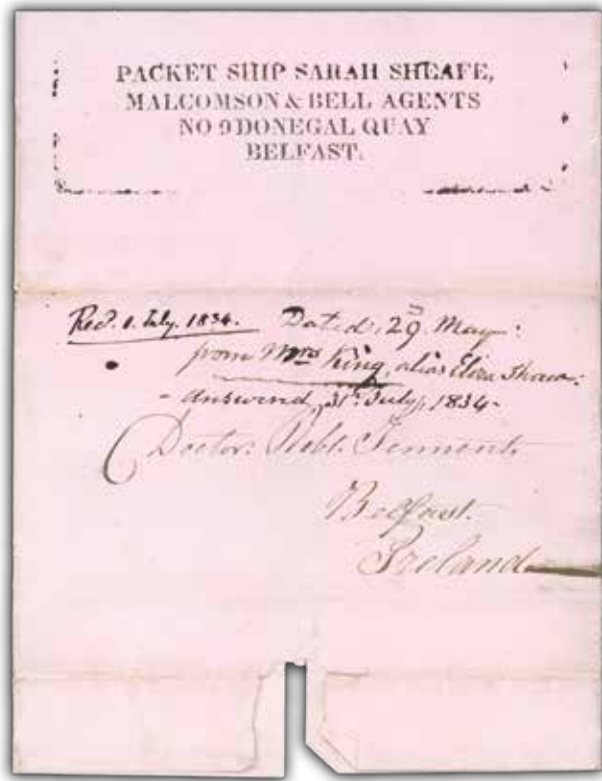 PACKET SHIP SARAH SHEAFE,
MALCOMSON & BELL AGENTS
NO 9 DONEGAL QUAY
BELFAST.
Recd. 1. July. 1834. Dated, 29 May:
from Mrs King, alias Eliza Shaw:
- Answered, 31st July, 1834 -
Doctor. Robt. Tennent
Belfast.
Ireland